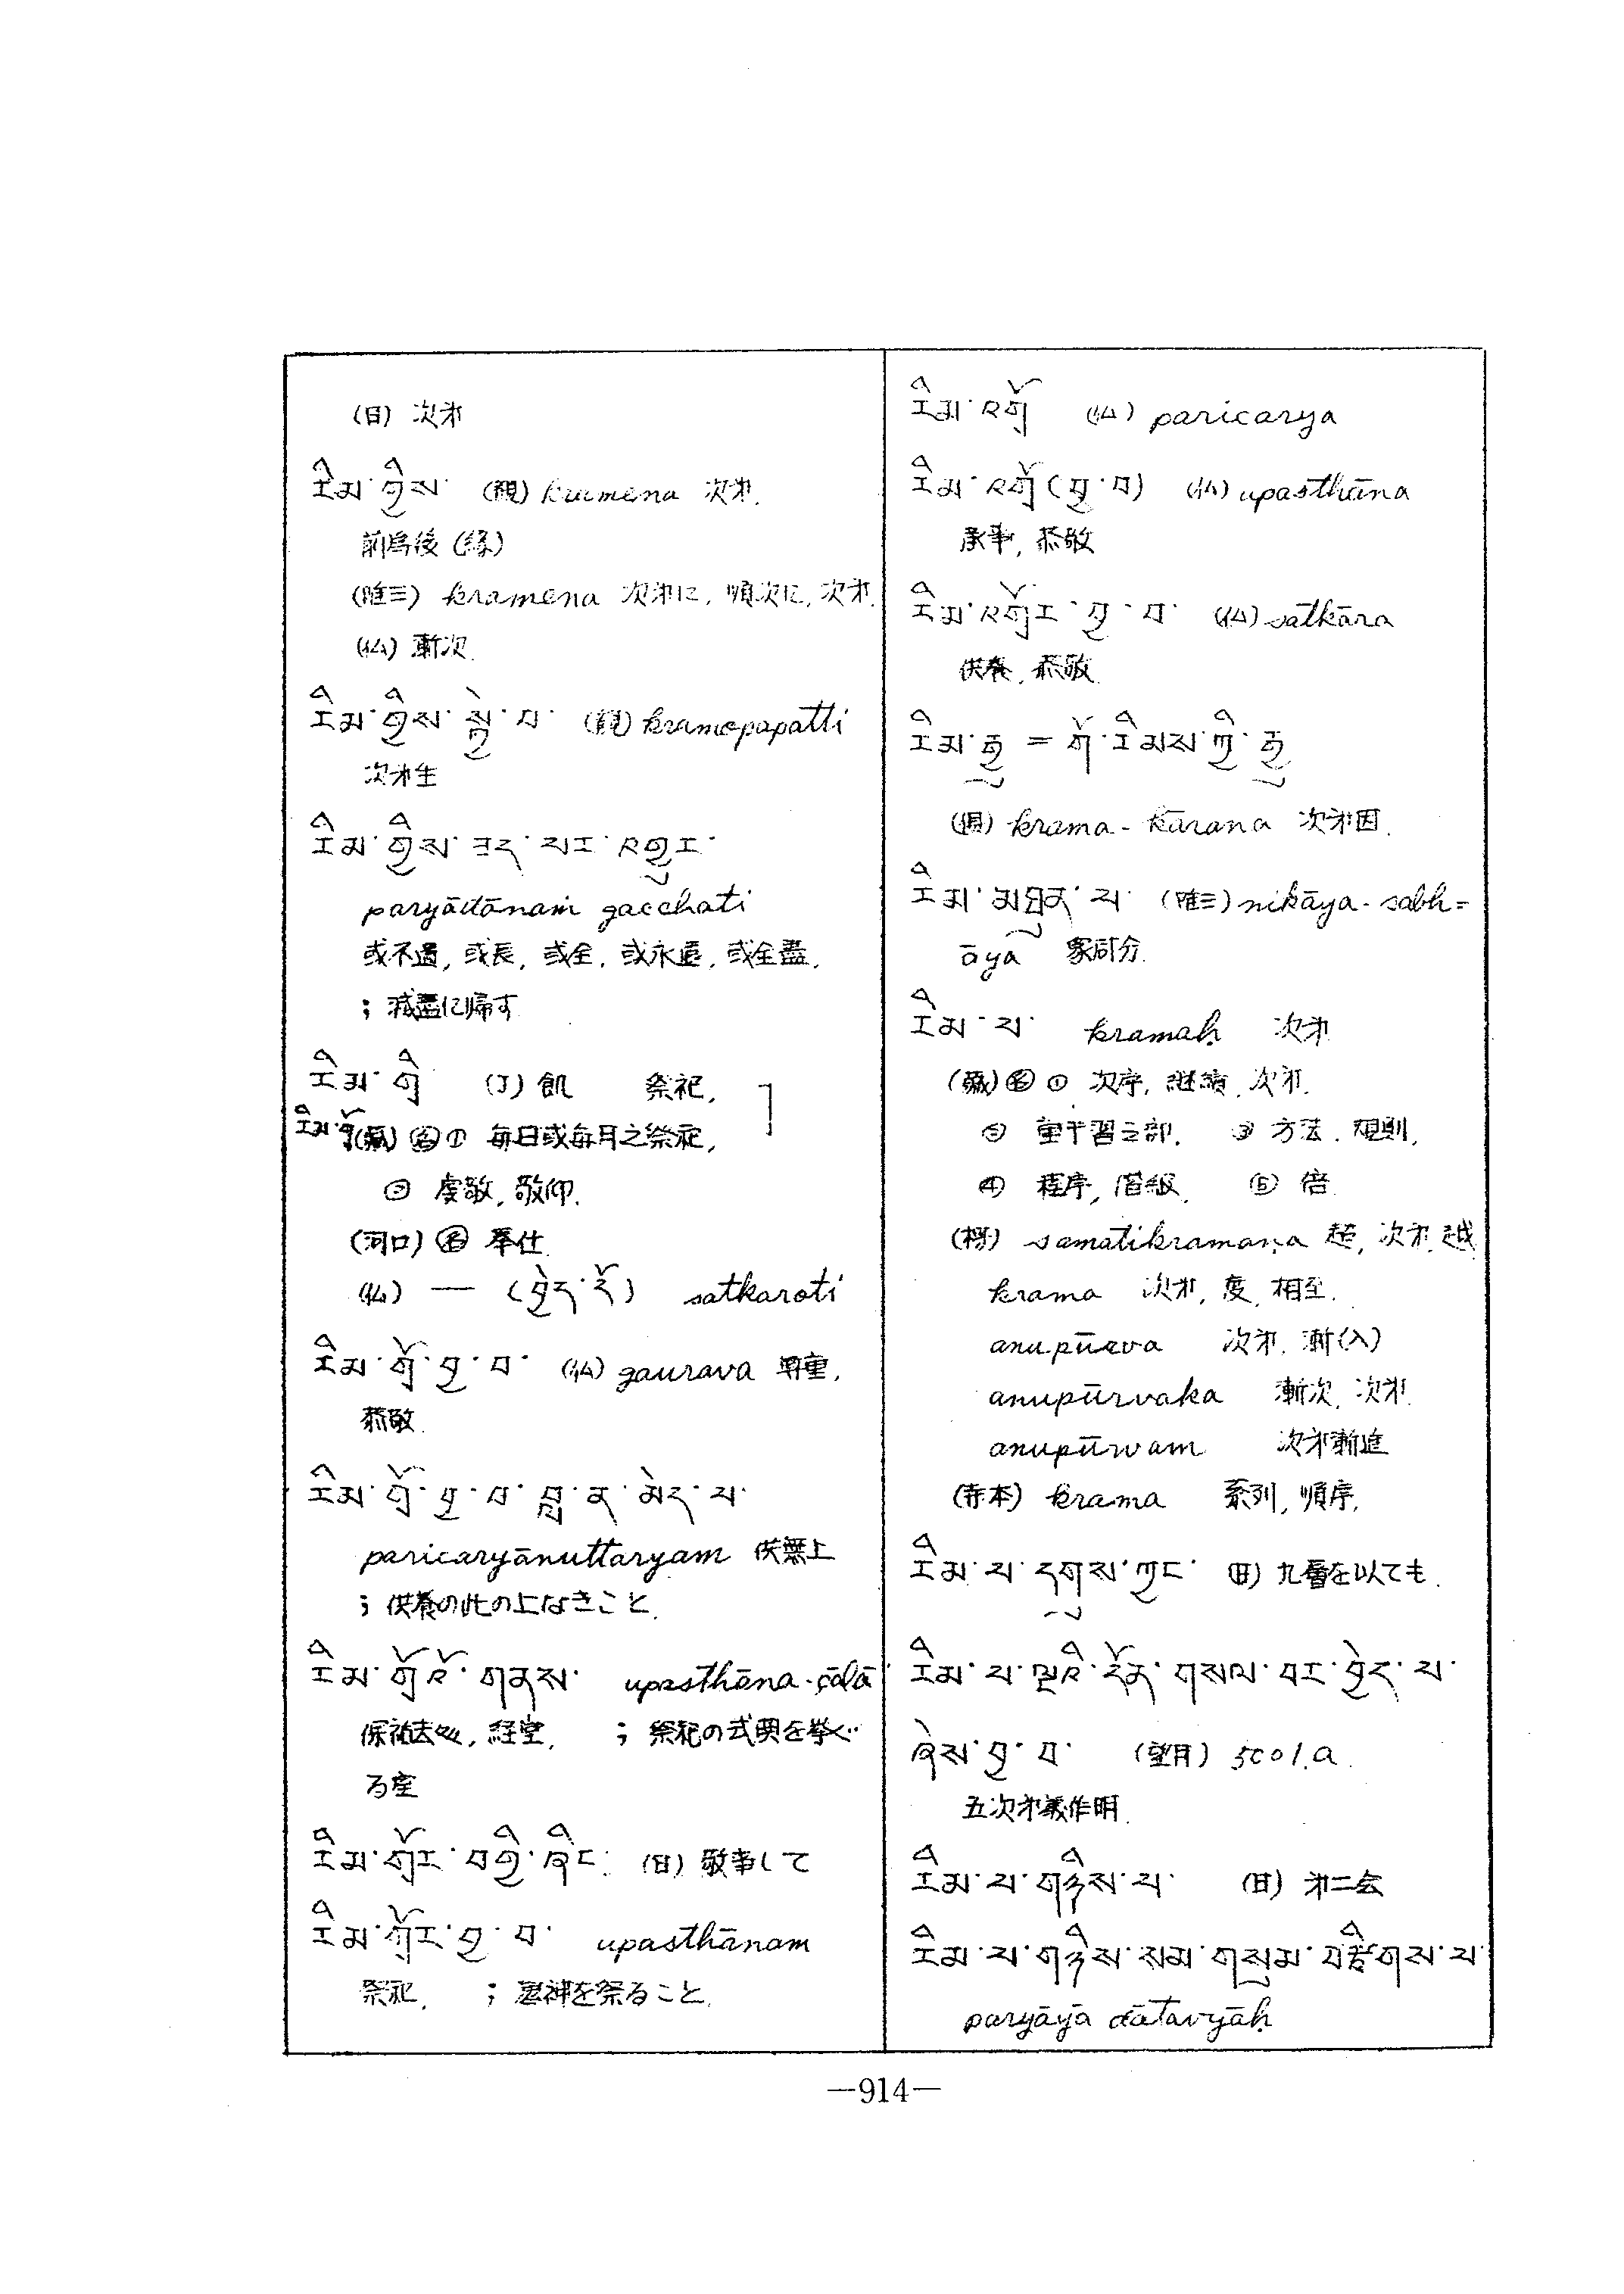 (日) 次才
རིམ་གྱིས་ (観) krumena 次才.
前為後 (縁)
(唯三) kramena 次才に, 順次に, 次才.
(仏) 漸次.
རིམ་གྱིས་སྐྱེ་བ་ (観) kramopapatti
次才生
རིམ་གྱིས་ཟད་པར་འགྱུར་
paryādānaṁ gacchati
或不遺, 或長, 或全, 或永遠, 或全盡.
; 滅盡に帰す
རིམ་གྲི (J) 飢 祭祀,
རིམ་གྲོ (蔵) 名 ① 毎日或毎月之祭祀,
② 虔敬, 敬仰.
(河口) 名 奉仕.
(仏) — (བྱེད་དོ) satkaroti
རིམ་གྲོ་བྱ་བ་ (仏) gaurava 尊重,
恭敬.
རིམ་གྲོ་བྱ་བ་བླ་ན་མེད་པ་
paricaryānuttaryam 供無上
; 供養の此の上なきこと.
རིམ་གྲོའི་གནས་ upasthāna-çālā
経堂, ; 祭祀の式典を挙ぐ
る座
རིམ་གྲོར་བགྱི་ཞིང་ (日) 敬事して
རིམ་གྲོར་བྱ་བ་ upasthānam
祭祀, ; 鬼神を祭ること.
རིམ་འགྲོ (仏) paricarya
རིམ་འགྲོ(བྱ་བ) (仏) upasthāna
承事, 恭敬
རིམ་འགྲོར་བྱ་བ་ (仏) satkāra
供養, 恭敬.
རིམ་རྒྱུ = གོ་རིམས་ཀྱི་རྒྱུ
krama-kārana 次才因.
རིམ་མཐུན་པ་ (唯三) nikāya-sabh=
āya 衆同分.
རིམ་པ་ kramaḥ 次才
(蔵) 名 ① 次序, 継續, 次才.
② ③ 方法, 規則,
④ 程序, 階級, ⑤ 倍.
(榊) samatikramaṇa 超, 次才, 越
krama 次才, 度, 相至.
anupūrva 次才, 漸(入)
anupūrvaka 漸次, 次才.
anupūrvam 次才漸進
(寺本) krama 系列, 順序,
རིམ་པ་དགུས་ཀྱང་ (日) 九層を以ても.
རིམ་པ་ལྔའི་དོན་གསལ་བར་བྱེད་པ་
ཞེས་བྱ་བ་ (望月) 5001.a.
五次才義作明.
རིམ་པ་གཉིས་པ་ (日) 才二会
རིམ་པ་གཉིས་སམ་གསུམ་
paryāyā dātavyāḥ
—914—